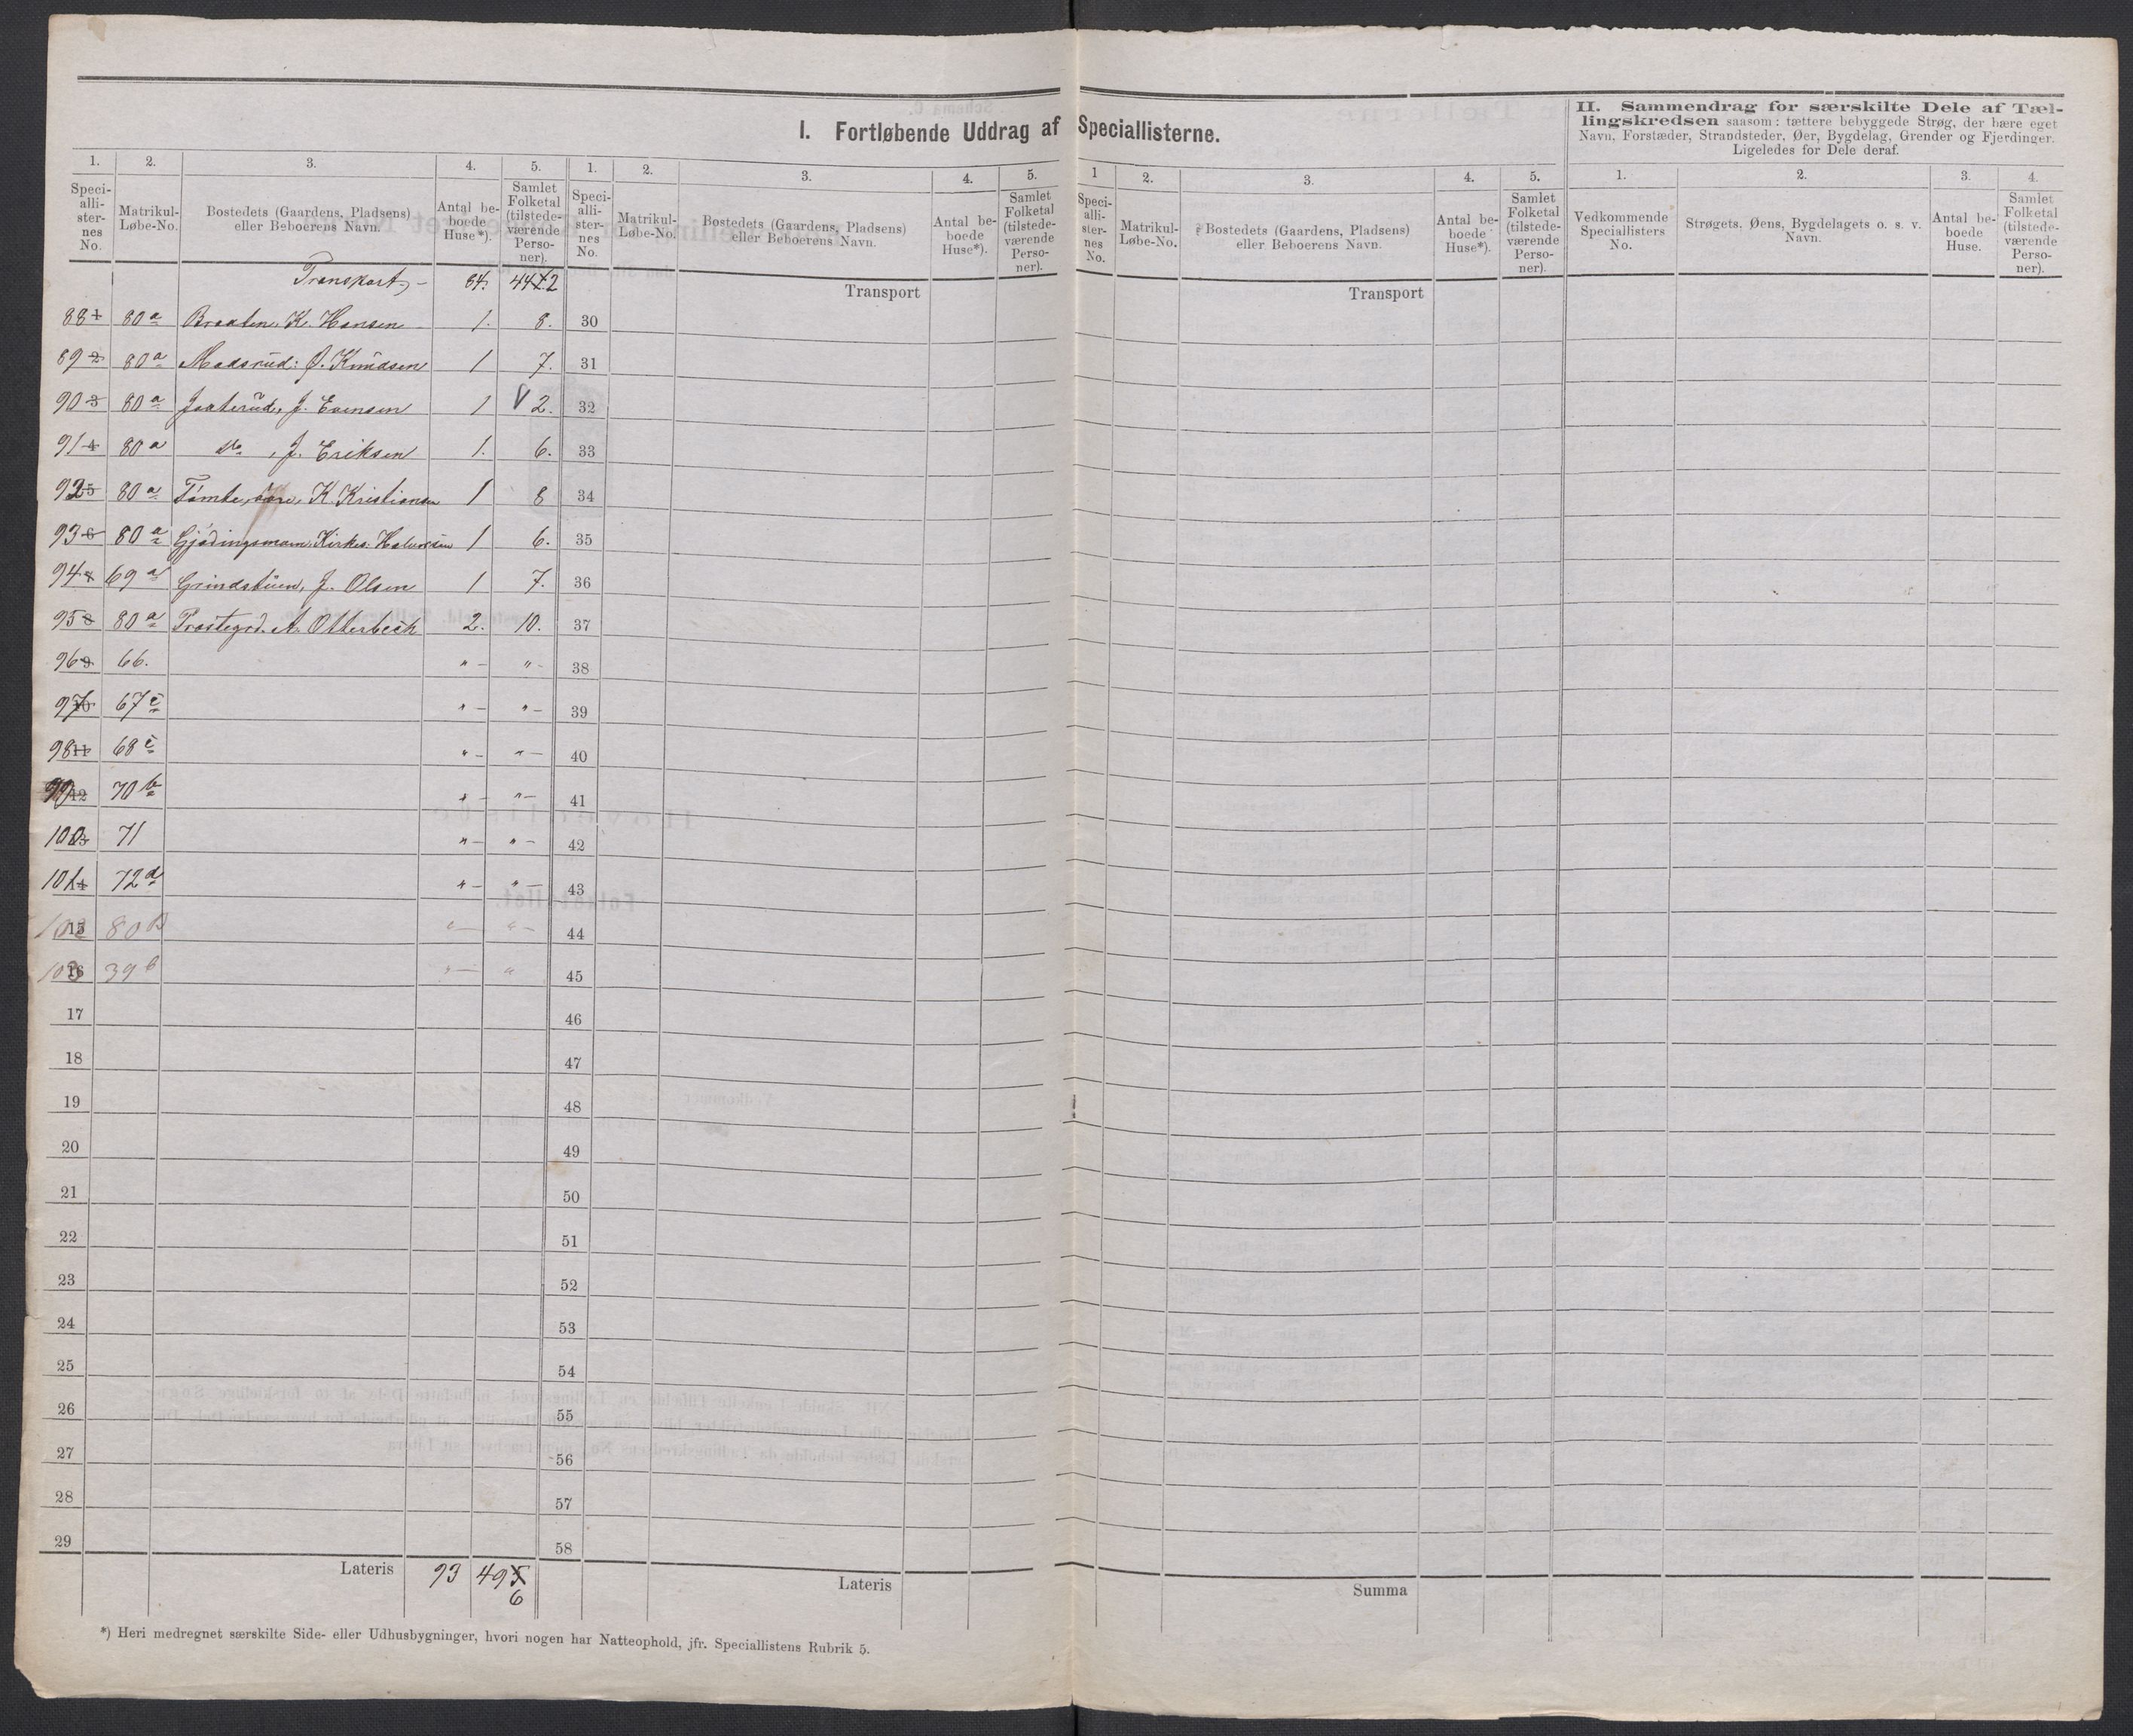 I. Fortløbende Uddrag af Speciallisterne.
II. Sammendrag for særskilte Dele af Tællingskredsen saasom: tættere bebyggede Strøg, der bære eget Navn, Forstæder, Strandsteder, Øer, Bygdelag, Grender og Fjerdinger. Ligeledes for Dele deraf.
1. 2. 3. 4. 5. 1. 2. 3. 4. 5. 1 2. 3. 4. 5. 1. 2. 3. 4.
Speciallisternes No. Matrikul-Løbe-No. Bostedets (Gaardens, Pladsens) eller Beboerens Navn. Antal beboede Huse*). Samlet Folketal (tilstedeværende Personer).
Speciallisternes No. Matrikul-Løbe-No. Bostedets (Gaardens, Pladsens) eller Beboerens Navn. Antal beboede Huse*). Samlet Folketal (tilstedeværende Personer).
Speciallisternes No. Matrikul-Løbe-No. Bostedets (Gaardens, Pladsens) eller Beboerens Navn. Antal beboede Huse*). Samlet Folketal (tilstedeværende Personer).
Vedkommende Speciallisters No. Strøgets, Øens, Bygdelagets o. s. v. Navn. Antal beboede Huse. Samlet Folketal (tilstedeværende Personer).
Transport, - 84. 442 Transport Transport
88 1 80 a Braaten, K. Hansen 1. 8. 30
89 2 80 a Madsrud: Ø. Knudsen 1 7. 31
90 3 80 a Jaaterud, J. Evensen 1 2. 32
91 4 80 a do, J. Eriksen 1. 6. 33
92 5 80 a Tømte, K. Kristiansen 1 8 34
93 6 80 a Gjødingsmoen, Kirkes. Halvorsen 1 6. 35
94 7 69 a Grindstuen, J. Olsen 1 7. 36
95 8 80 a Prostegrd. A. Otterbech 2. 10. 37
96 9 66. " - " - 38
97 10 67 c " - " - 39
98 11 68 c " - " - 40
99 12 70 b " - " - 41
100 13 71 " - " - 42
101 14 72 d " - " - 43
102 15 80 b " - " - 44
103 16 39 b " - " 45
17 46
18 47
19 48
20 49
21 50
22 51
23 52
24 53
25 54
26 55
27 56
28 57
29 58
Lateris 93 495 Lateris Summa
6
*) Heri medregnet særskilte Side- eller Udhusbygninger, hvori nogen har Natteophold, jfr. Speciallistens Rubrik 5.